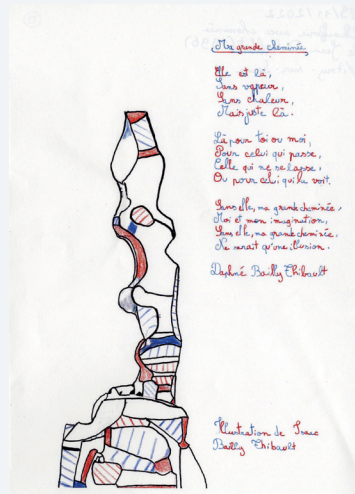 Ma grande cheminée
Elle est là,
Sans vapeur,
Sans chaleur,
Mais juste là.
Là pour toi ou moi,
Pour celui qui passe,
Celle qui ne se lasse,
Ou pour celui qui la voit.
Sans elle, ma grande cheminée,
Moi et mon imagination,
Sans elle, ma grande cheminée,
Ne serait qu'une illusion.
Daphné Bailly Thibault
Illustration de Isaac
Bailly Thibault